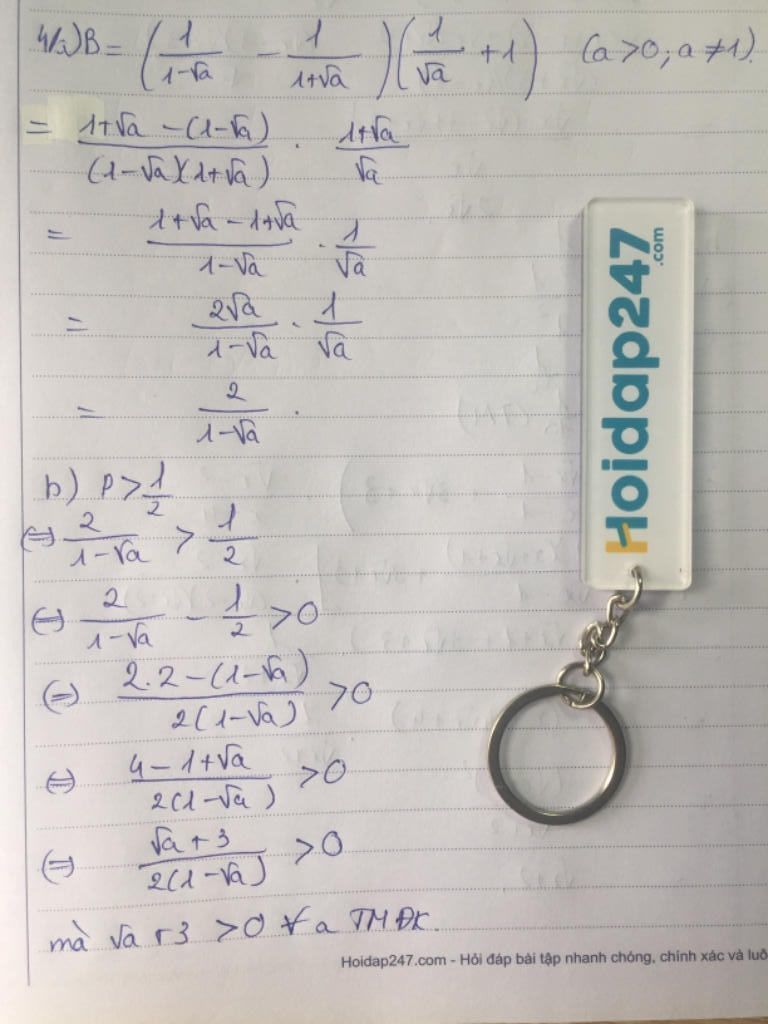 4/a) B = (1/(1-√a) - 1/(1+√a))(1/√a + 1) (a > 0; a ≠ 1).
= (1+√a - (1-√a))/((1-√a)(1+√a)) . (1+√a)/√a
= (1+√a - 1+√a)/(1-√a) . 1/√a
= 2√a/(1-√a) . 1/√a
= 2/(1-√a) .
b) P > 1/2
(=) 2/(1-√a) > 1/2
(=) 2/(1-√a) - 1/2 > 0
(=) (2.2 - (1-√a))/(2(1-√a)) > 0
(=) (4 - 1+√a)/(2(1-√a)) > 0
(=) (√a + 3)/(2(1-√a)) > 0
mà √a + 3 > 0 ∀ a TMĐK.
Hoidap247.com
Hoidap247.com - Hỏi đáp bài tập nhanh chóng, chính xác và luô